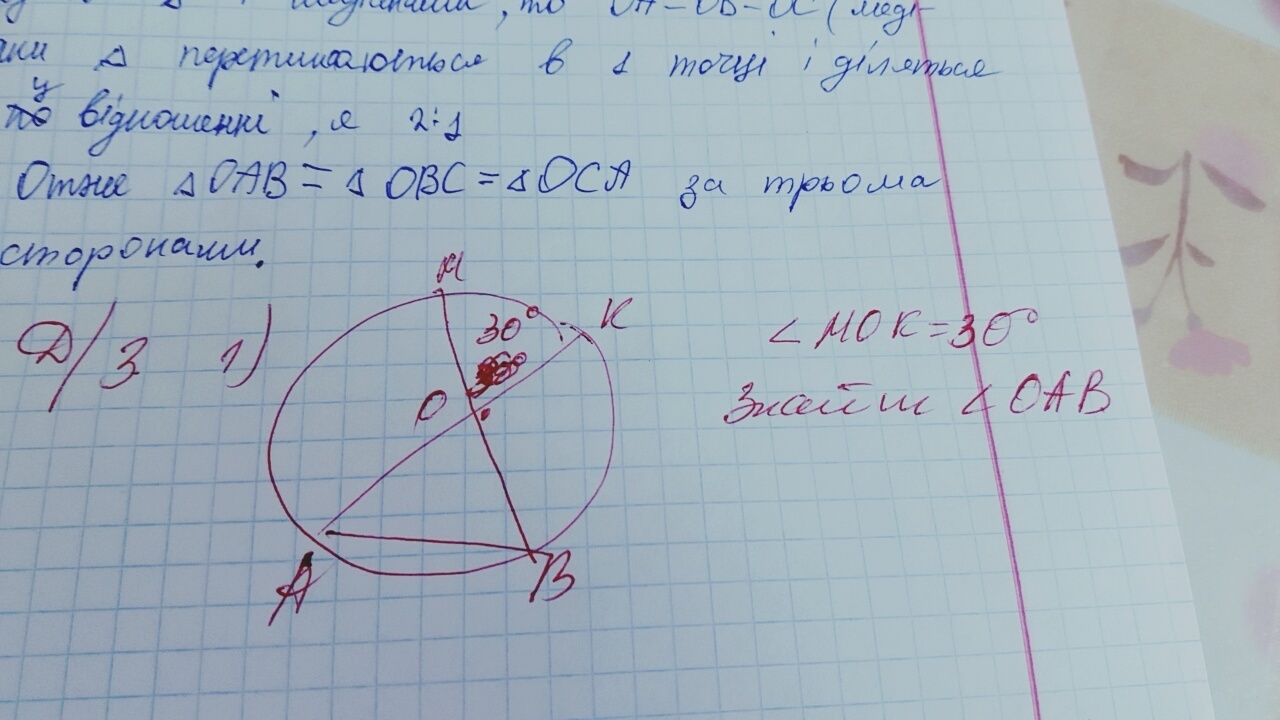 медіанами, то OA=OB=OC (меді-
ани Δ перетинаються в 1 точці і діляться
у відношенні, я 2:1
Отже ΔOAB = ΔOBC = ΔOCA за трьома
сторонами.
Д/З 1)
M
K
30°
O
A
B
<MOK=30°
Знайти <OAB